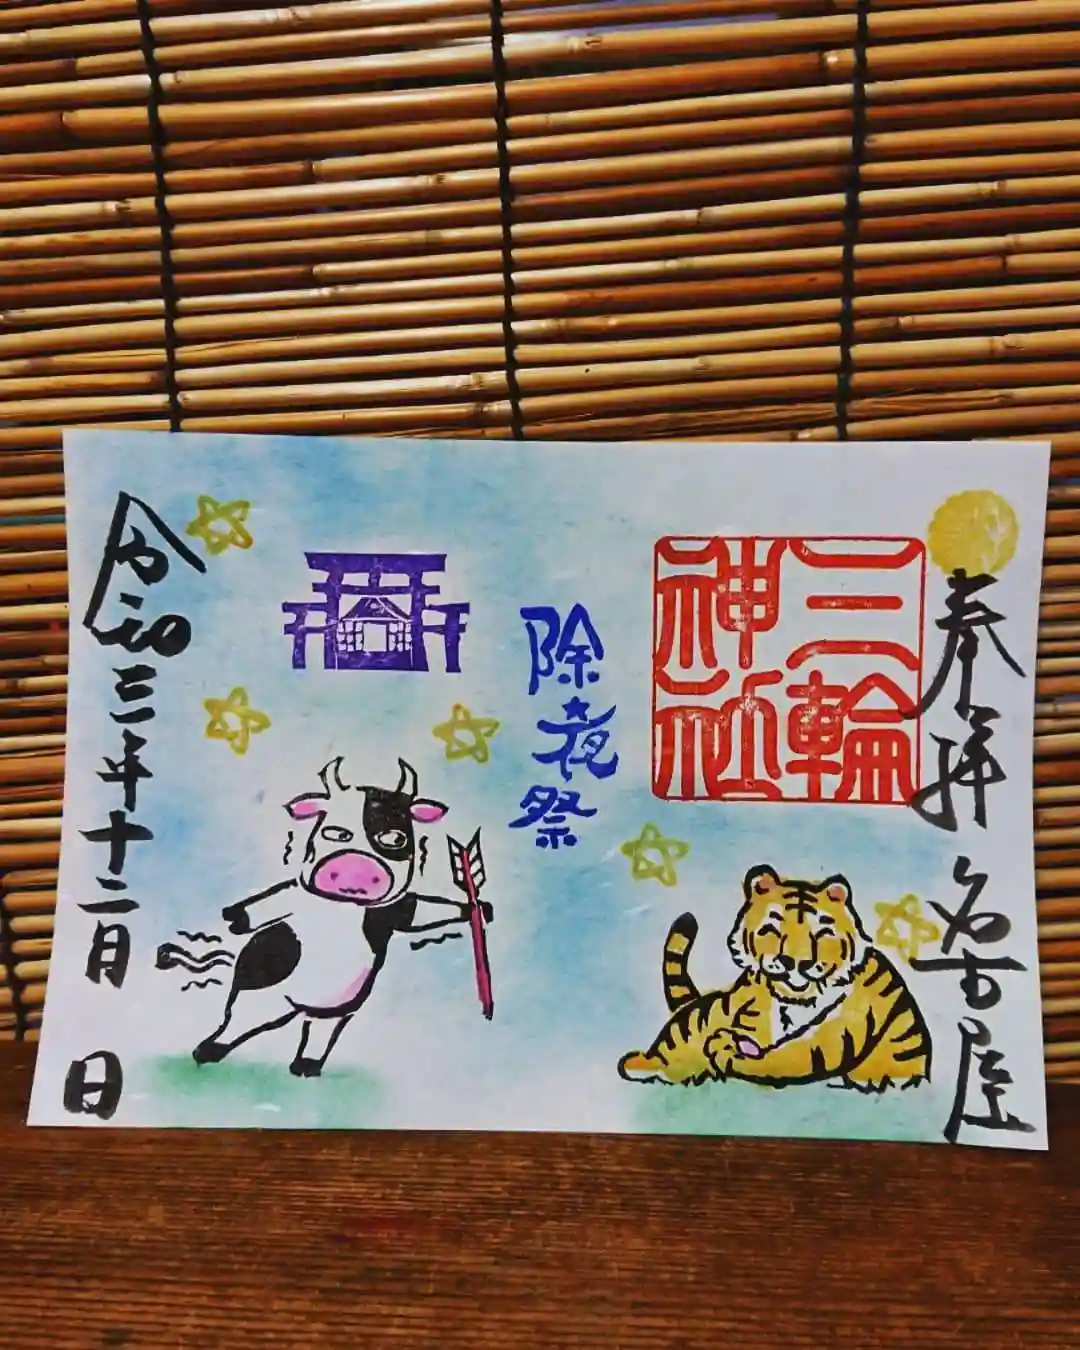 奉拝 名古屋
三輪
神社
除★夜祭
令和三年十二月 日